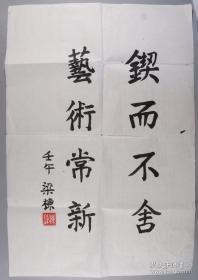 鍥而不舍
藝術常新
壬午 梁棟